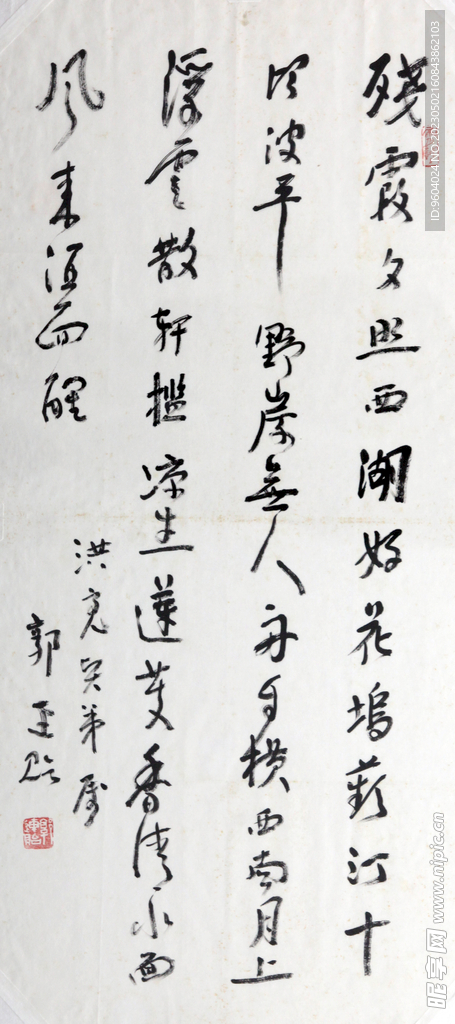 殘霞夕照西湖好花塢蘋汀十
頃波平野岸無人舟自橫西南月上
浮雲散軒檻凉生蓮芰香清水面
風來酒面醒
洪亮弟屬
郭
ID:9604024 NO:20230502160843862103
昵享网 www.nipic.cn